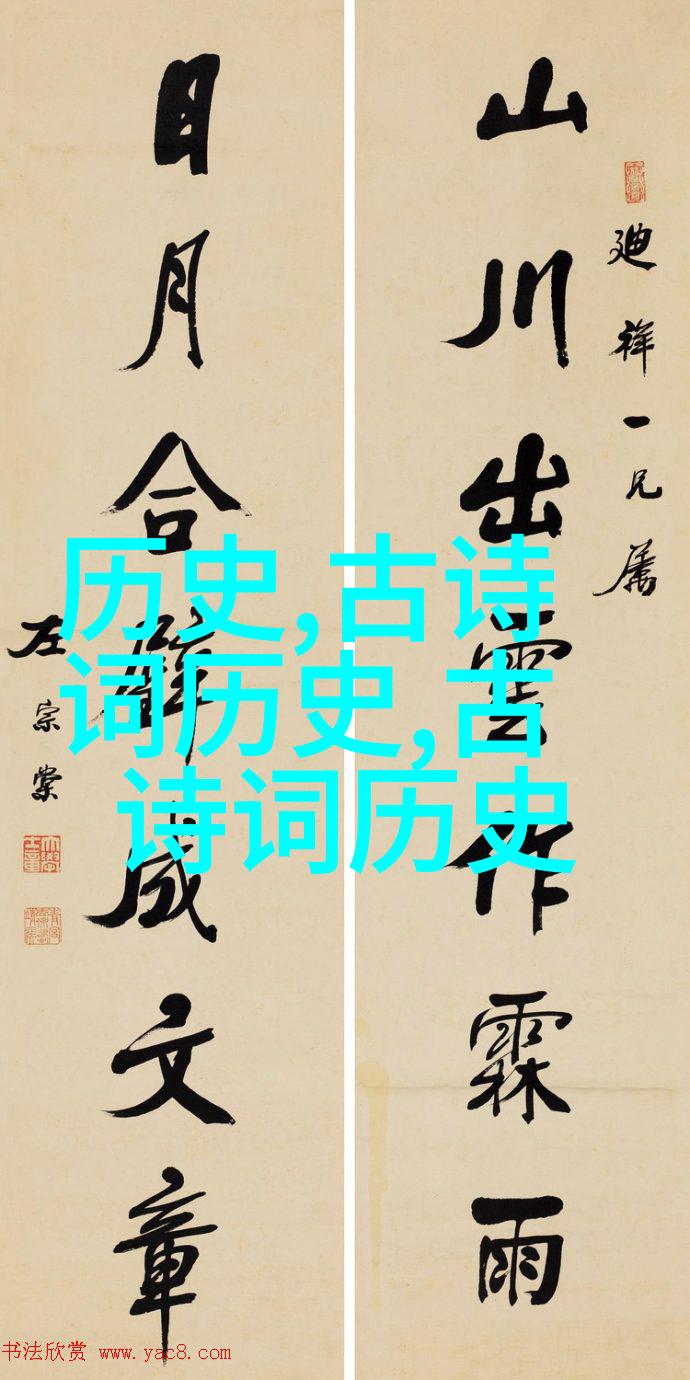 廸祥一兄属
山川出雲作霖雨
日月合璧成文章
左宗棠
历史,古诗
词历史,古
诗词历史
书法欣赏 www.yac8.com